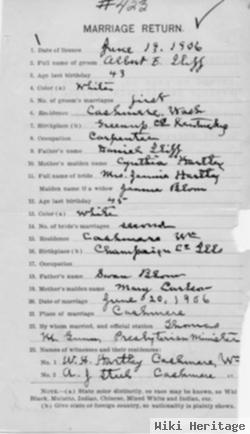 #423
MARRIAGE RETURN.
1. Date of license June 19, 1906
2. Full name of groom Albert E. Iliff
3. Age last birthday 43
4. Color (a) White
5. No. of groom's marriages first
6. Residence Cashmere, Wash
7. Birthplace (b) Greenup Co Kentucky
8. Occupation Carpenter
9. Father's name Daniel Iliff
10. Mother's maiden name Cynthia Hartley
11. Full name of bride Mrs. Jennie Hartley
Maiden name if a widow Jennie Blom
12. Age last birthday 45
13. Color (a) white
14. No. of bride's marriages second
15. Residence Cashmere Wn
16. Birthplace (b) Champaign Co Ills
17. Occupation
18. Father's name Swan Blom
19. Mother's maiden name Mary Carlson
20. Date of marriage June 20, 1906
21. Place of marriage Cashmere
22. By whom married, and official station Thomas
M. Gunn, Presbyterian Minister
23. Names of witnesses and their residences:
No. 1 W. H. Hartley Cashmere, Wn
No. 2 A. J. Cashmere "
NOTE.—(a) State color distinctly, so race may be known, as White,
Black, Mulatto, Indian, Chinese, Mixed White and Indian, etc.
(b) Give state or foreign country, so nationality is plainly shown.
Wiki Heritage